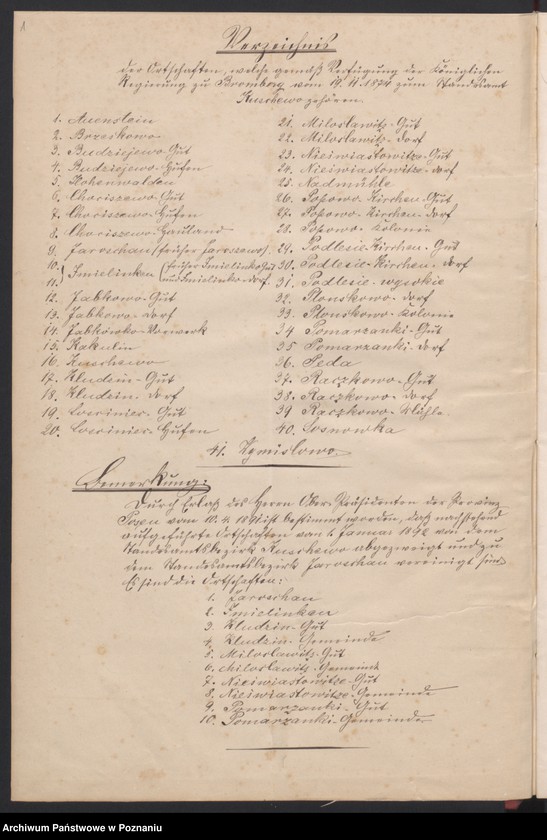 1
Verzeichnis
der Ortschaften, welche gemäß Verfügung der Königlichen
Regierung zu Bromberg vom 19. 11. 1874 zum Standesamt
gehören.
1. Auenstein
2. Brzeskowo
3. Budziejewo-Gut
4. Budziejewo-Hufen
5. Hohenwalden
6. Choriszewo-Gut
7. Choriszewo-Hufen
8. Choriszewo-Hauland
9. Jaroschau (früher Jaroszewo)
10. 11. Imielinken (früher Imielinko-Gut und Imielinko-dorf)
12. Jabkowo-Gut
13. Jabkowo-dorf
14. Jabkowko-Vorwerk
15. Kakulin
16.
17. Kludzin-Gut
18. Kludzin-dorf
19. Gut
20. Hufen
21. Miloslawitz-Gut
22. Miloslawitz-dorf
23. Niciwiastowitze-Gut
24. Niciwiastowitze-dorf
25. Nadmühle
26. Popowo-Kirchen-Gut
27. Popowo-Kirchen-dorf
28. Popowo-Kolonie
29. Podlesie-Kirchen-Gut
30. Podlesie-Kirchen-dorf
31. Podlesie-wysokie
32. Plonskowo-dorf
33. Plonskowo-Kolonie
34 Pomarzanki-Gut
35 Pomarzanki-dorf
36.
37. Raczkowo-Gut
38. Raczkowo-dorf
39 Raczkowo-Mühle
40. Sosnowka
41.
Bemerkung:
Durch Erlaß des Herrn Ober-Präsidenten der Provinz
Posen vom 10. 4. ist bestimmt worden, daß nachstehend
aufgeführte Ortschaften vom 1. Januar 1892 von dem
Standesamtsbezirk abgezweigt und zu
dem Standesamtsbezirk Jaroschau vereinigt sind
Es sind die Ortschaften:
1. Jaroschau
2. Imielinken
3 Kludzin-Gut
4. Kludzin-Gemeinde
5. Miloslawitz-Gut
6. Miloslawitz-Gemeinde
7. Niciwiastowitze-Gut
8. Niciwiastowitze-Gemeinde
9. Pomarzanki-Gut
10. Pomarzanki-Gemeinde
Archiwum Państwowe w Poznaniu